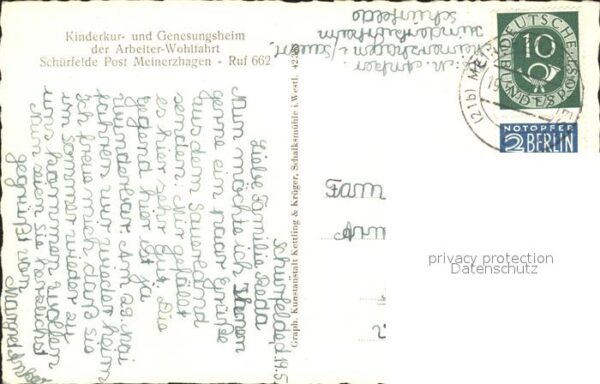 Kinderkur- und Genesungsheim
der Arbeiter-Wohlfahrt
Schürfelde Post Meinerzhagen - Ruf 662
Schürfelde
Kinderkurheim
Meinerzhagen i/Sauerl.
DEUTSCHE BUNDESPOST
10
NOTOPFER
2 BERLIN
(21b)
Graph. Kunstanstalt Kettling & Krüger, Schalksmühle i. Westf.
Schürfelde, d. 14.5.
Liebe Familie
Nun möchte ich Ihnen
gerne ein paar Grüße
aus dem Sauerland
senden. Mir gefällt
es hier sehr gut. Die
Gegend hier ist ja
wunderbar. Am 29. Mai
fahren wir wieder heim
Ich freue mich, daß sie
im Sommer wieder zu
uns kommen wollen
Nun seien sie herzlichst
gegrüßt von
Fam
privacy protection
Datenschutz